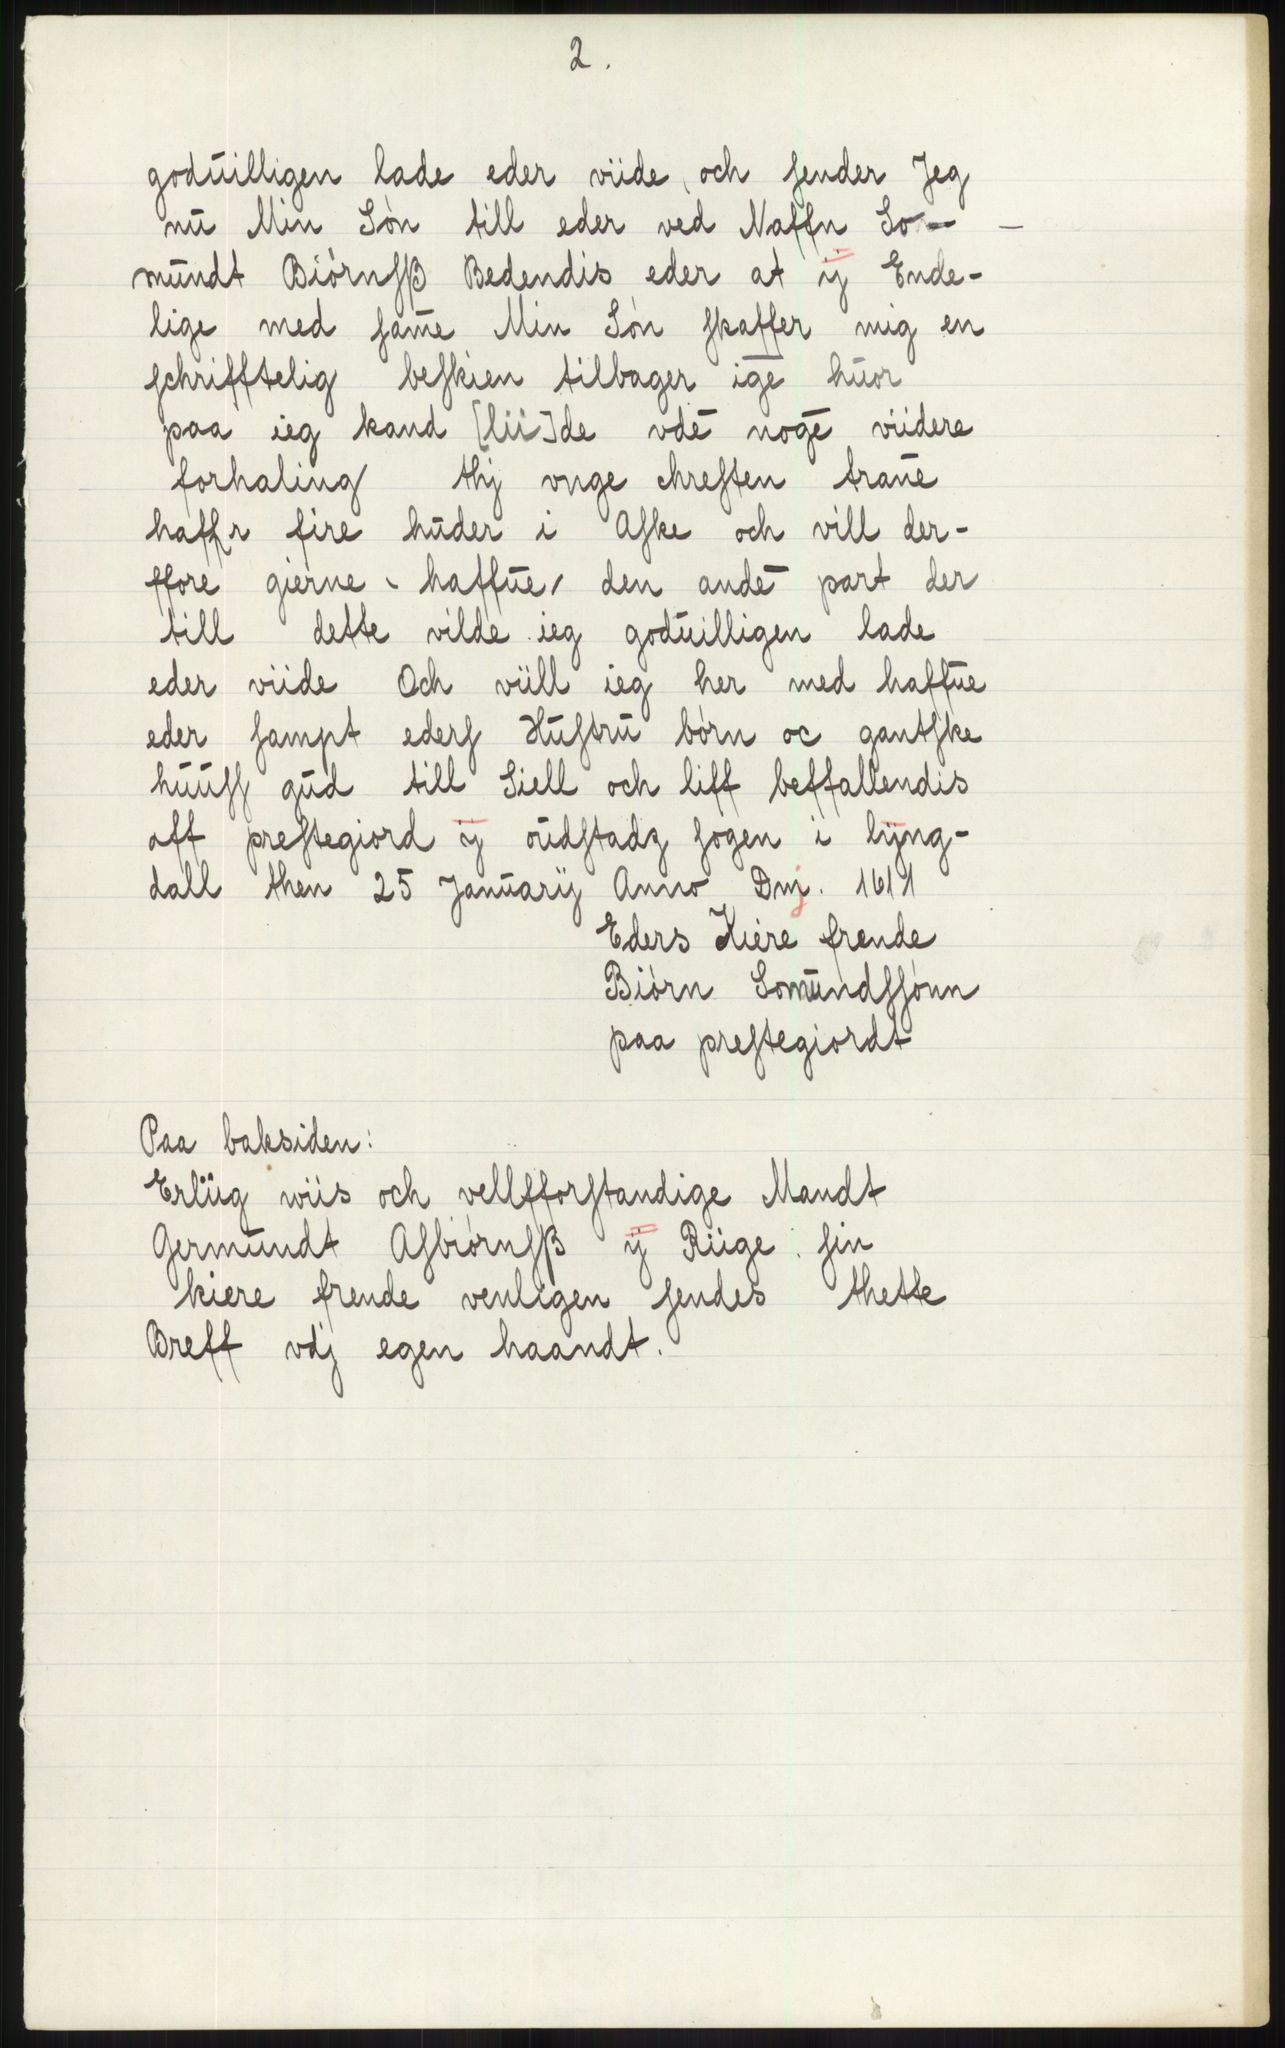 2.
goduilligen lade eder viide, och sender Jeg
nu Min Søn till eder ved Naffn So-
mundt Biørnsß Bedendis eder at ij Ende-
lige med same̅ Min Søn skaffer mig en
schrifftelig beskien tilbager ige̅ huor
paa ieg kand [lii]de vde̅ noge̅ viidere
forhaling thj vnge chresten trane
haffr fire huder i Aske och vill der-
ffore gierne haffue den ande̅ part der
till dette vilde ieg goduilligen lade
eder viide Och viill ieg her med haffue
eder sampt eders Hustru børn oc gantske
huuss gud till Siell och liff beffallendis
aff prestegiord ij oudstadz sogen i lyng-
dall then 25 Januarij Anno Dnj. 1611
Eders Kiere frende
Biørn Somundssønn
paa prestegiordt
Paa baksiden:
Erliig wiis och vellfforstandige Mandt
Germundt Asbiørnsß ij Riige sin
kiere frende venligen sendes thette
Breff vdj egen haandt.